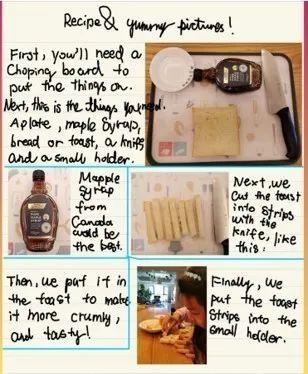 Recipe & yummy pictures!
First, you'll need a
Choping board to
put the things on.
Next, this is the things you need.
A plate, maple syrup,
bread or toast, a knife
and a small holder.
Mapple
Syrup
from
Canada
would be
the best.
Next, we
Cut the toast
into strips
with the
knife, like
this:
Then, we put it in
the toast to make
it more crumly,
and tasty!
Finally, we
put the toast
strips into the
small holder.